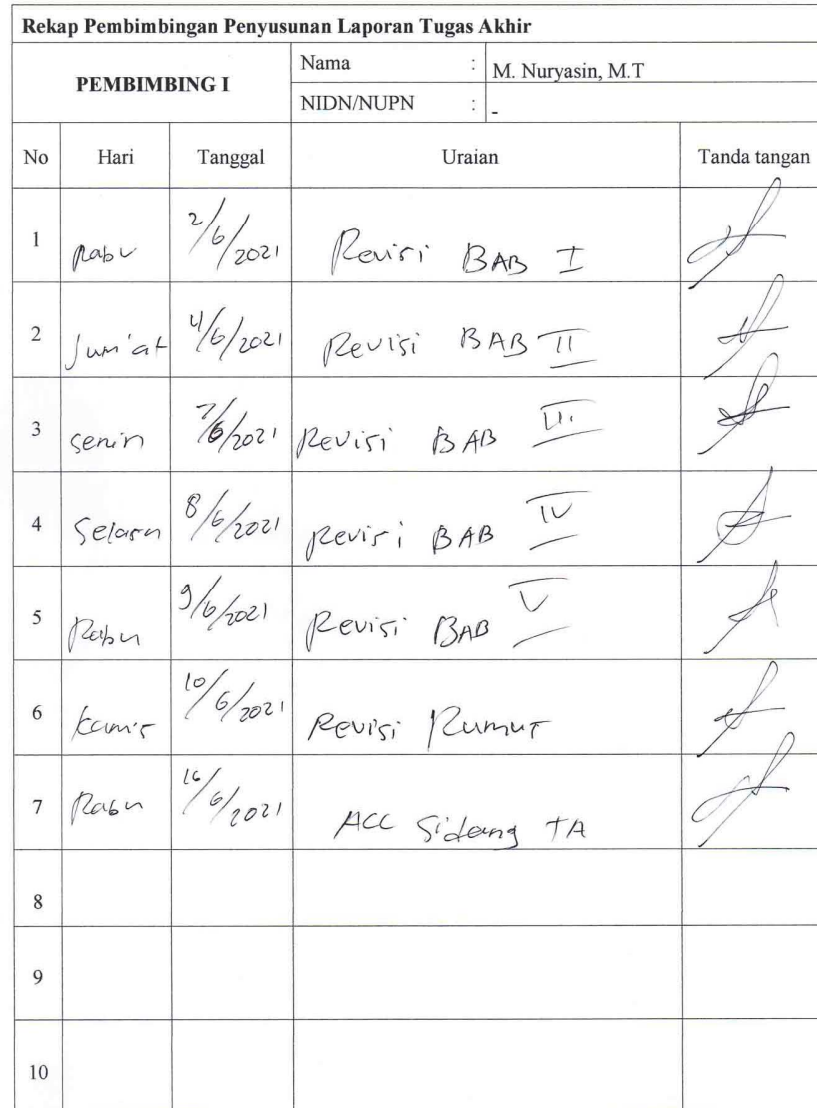 Rekap Pembimbingan Penyusunan Laporan Tugas Akhir
PEMBIMBING I
Nama : M. Nuryasin, M.T
NIDN/NUPN : -
No Hari Tanggal Uraian Tanda tangan
1 Rabu 2/6/2021 Revisi BAB I
2 Jum'at 4/6/2021 Revisi BAB II
3 Senin 7/6/2021 Revisi BAB III
4 Selasa 8/6/2021 Revisi BAB IV
5 Rabu 9/6/2021 Revisi BAB V
6 Kamis 10/6/2021 Revisi Rumus
7 Rabu 16/6/2021 ACC Sidang TA
8
9
10